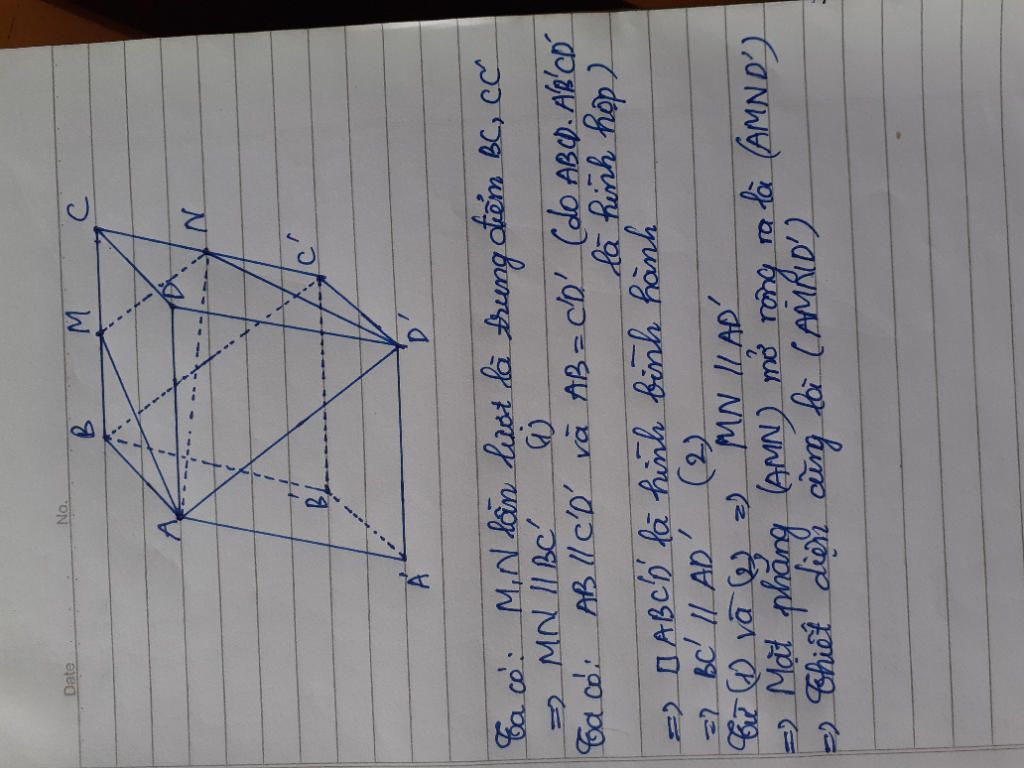 Date
No.
B M C
A D N
B' C'
A' D'
Ta có: M, N lần lượt là trung điểm BC, CC'
=> MN // BC' (1)
Ta có: AB // C'D' và AB = C'D' (do ABCD.A'B'C'D'
là hình hộp)
=> □ ABC'D' là hình bình hành
=> BC' // AD' (2)
Từ (1) và (2) => MN // AD'
=> Mặt phẳng (AMN) mở rộng ra là (AMND')
=> Thiết diện cũng là (AMND')